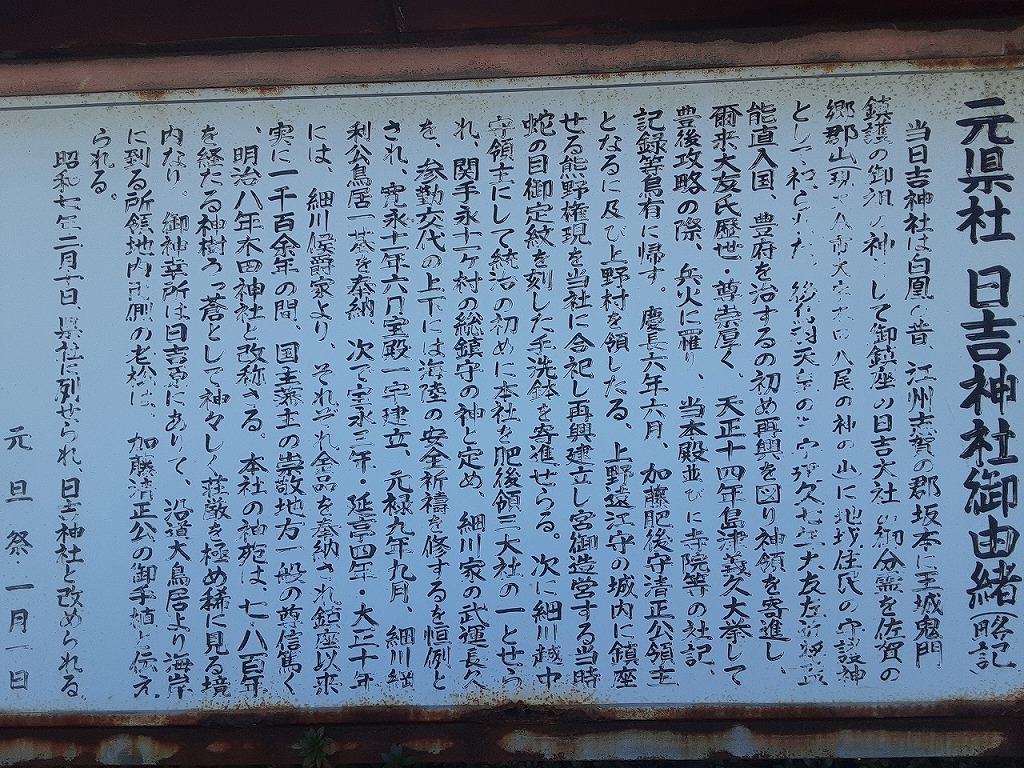 元県社 日吉神社御由緒(略記)
当日吉神社は白鳳の昔、江州志賀の郡坂本に王城鬼門
鎮護の御祖の神として御鎮座の日吉大社の御分霊を佐賀の
郷郡山現 八尾の神の山に地域住民の守護神
として祀 後鳥羽天皇の 建久七年大友左近将監
能直入国、豊府を治するの初め再興を図り神領を寄進し、
爾来大友氏歴世・尊崇厚く、天正十四年島津義久大挙して
豊後攻略の際、兵火に罹り、当本殿並びに寺院等の社記、
記録等烏有に帰す。慶長六年六月、加藤肥後守清正公領主
となるに及び上野村を領したる、上野遠江守の城内に鎮座
せる熊野権現を当社に合祀し再興建立し宮御造営する当時
蛇の目御定紋を刻した手洗鉢を寄進せらる。次に細川越中
守領主にして統治の初めに本社を肥後領三大社の一とせら
れ、関手永十一ヶ村の総鎮守の神と定め、細川家の武運長久
を、参勤交代の上下には海陸の安全祈禱を修するを恒例と
され、寛永十一年六月宝殿一宇建立、元禄九年九月、細川綱
利公鳥居一基を奉納、次で宝永三年・延享四年・大正十年
には、細川侯爵家より、それぞれ金品を奉納され鎮座以来
実に一千百余年の間、国主藩主の崇敬地方一般の尊信篤く
、明治八年木四神社と改称さる。本社の神苑は、七八百年
を経たる神樹うっ蒼として神々しく荘厳を極め稀に見る境
内なり。御神幸所は日吉原にありて、沿道大鳥居より海岸
に到る所領地内 側の老松は、加藤清正公の御手植と伝え
られる。
昭和七年二月十日、県社に列せられ、日吉神社と改められる
元旦祭 一月一日